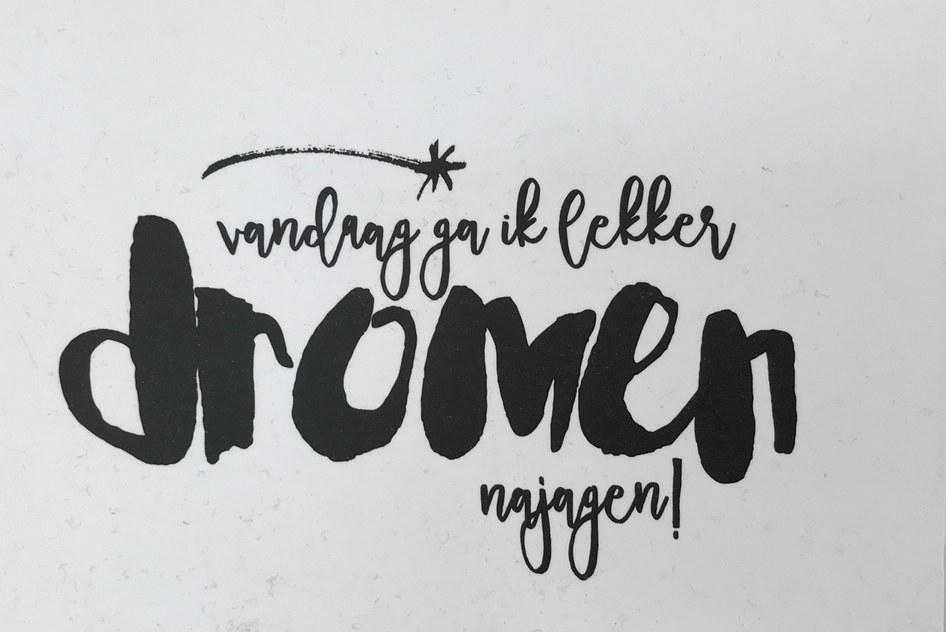 vandaag ga ik lekker
dromen
najagen!